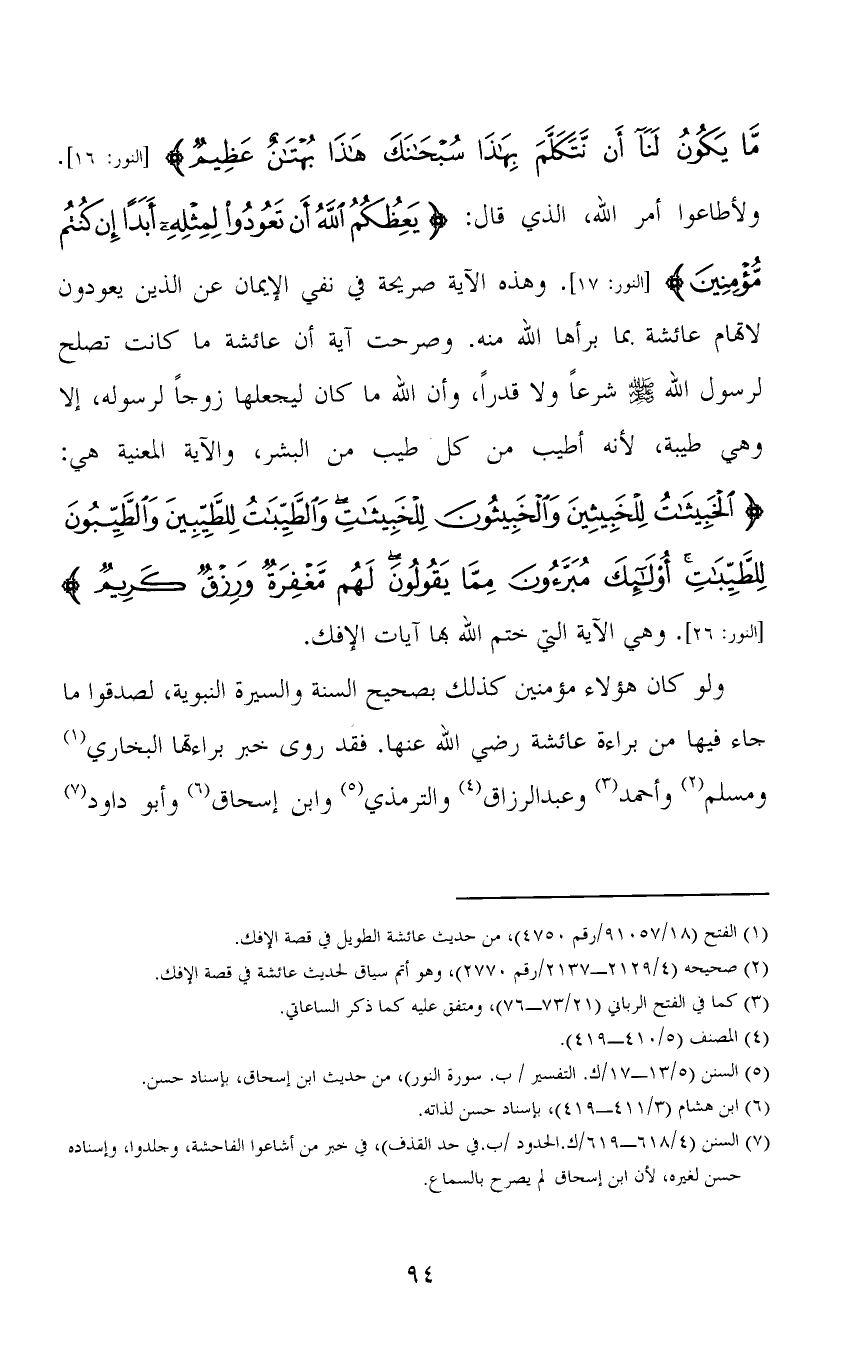 مَّا يَكُونُ لَنَآ أَن نَّتَكَلَّمَ بِهَٰذَا سُبْحَٰنَكَ هَٰذَا بُهْتَٰنٌ عَظِيمٌ﴾ [النور: ١٦].
ولأطاعوا أمر الله، الذي قال: ﴿يَعِظُكُمُ ٱللَّهُ أَن تَعُودُوا۟ لِمِثْلِهِۦٓ أَبَدًا إِن كُنتُم
مُّؤْمِنِينَ﴾ [النور: ١٧]. وهذه الآية صريحة في نفي الإيمان عن الذين يعودون
لاتهام عائشة بما برأها الله منه. وصرحت آية أن عائشة ما كانت تصلح
لرسول الله ﷺ شرعاً ولا قدراً، وأن الله ما كان ليجعلها زوجاً لرسوله، إلا
وهي طيبة، لأنه أطيب من كل طيب من البشر، والآية المعنية هي:
﴿ٱلْخَبِيثَٰتُ لِلْخَبِيثِينَ وَٱلْخَبِيثُونَ لِلْخَبِيثَٰتِ ۖ وَٱلطَّيِّبَٰتُ لِلطَّيِّبِينَ وَٱلطَّيِّبُونَ
لِلطَّيِّبَٰتِ ۚ أُو۟لَٰٓئِكَ مُبَرَّءُونَ مِمَّا يَقُولُونَ ۖ لَهُم مَّغْفِرَةٌ وَرِزْقٌ كَرِيمٌ﴾
[النور: ٢٦]. وهي الآية التي ختم الله بها آيات الإفك.
ولو كان هؤلاء مؤمنين كذلك بصحيح السنة والسيرة النبوية، لصدقوا ما
جاء فيها من براءة عائشة رضي الله عنها. فقد روى خبر براءتها البخاري(١)
ومسلم(٢) وأحمد(٣) وعبدالرزاق(٤) والترمذي(٥) وابن إسحاق(٦) وأبو داود(٧)
(١) الفتح (٩١٠٥٧/١٨/رقم ٤٧٥٠)، من حديث عائشة الطويل في قصة الإفك.
(٢) صحيحه (٢١٢٩/٤—٢١٣٧/رقم ٢٧٧٠)، وهو أتم سياق لحديث عائشة في قصة الإفك.
(٣) كما في الفتح الرباني (٧٣/٢١—٧٦)، ومتفق عليه كما ذكر الساعاتي.
(٤) المصنف (٤١٠/٥—٤١٩).
(٥) السنن (١٣/٥—١٧/ك. التفسير / ب. سورة النور)، من حديث ابن إسحاق، بإسناد حسن.
(٦) ابن هشام (٤١١/٣—٤١٩)، بإسناد حسن لذاته.
(٧) السنن (٦١٨/٤—٦١٩/ك.الحدود /ب.في حد القذف)، في خبر من أشاعوا الفاحشة، وجلدوا، وإسناده
حسن لغيره، لأن ابن إسحاق لم يصرح بالسماع.
٩٤